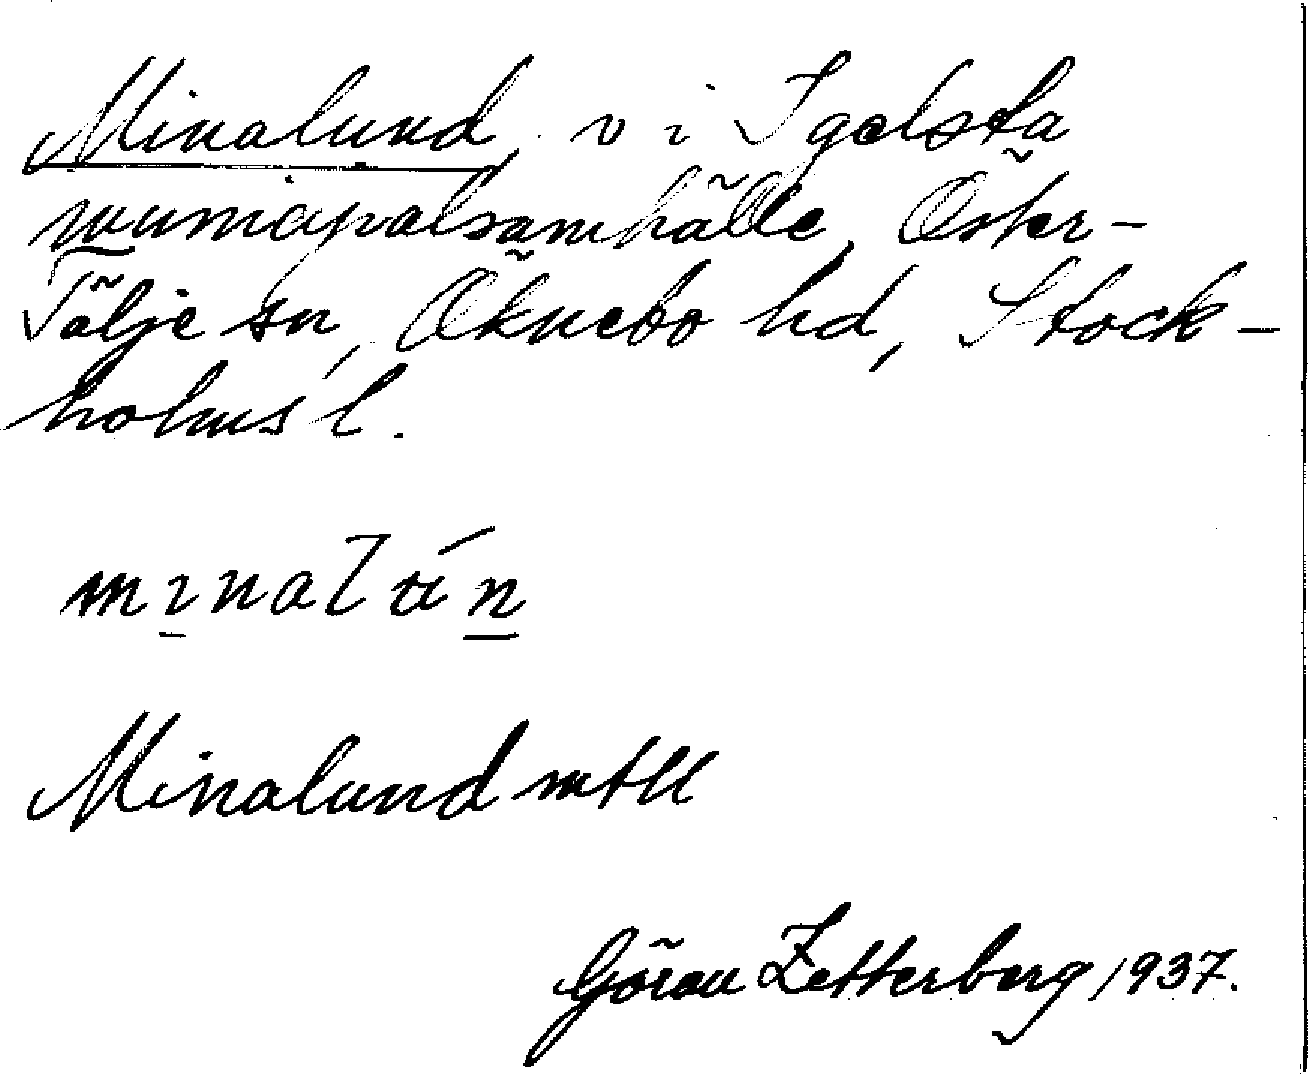 Minalund, v i Igelsta
municipalsamhälle, Öster-
Tälje sn, Öknebo hd, Stock-
holms l.
mınalún
Minalund mtll
Göran Zetterberg 1937.